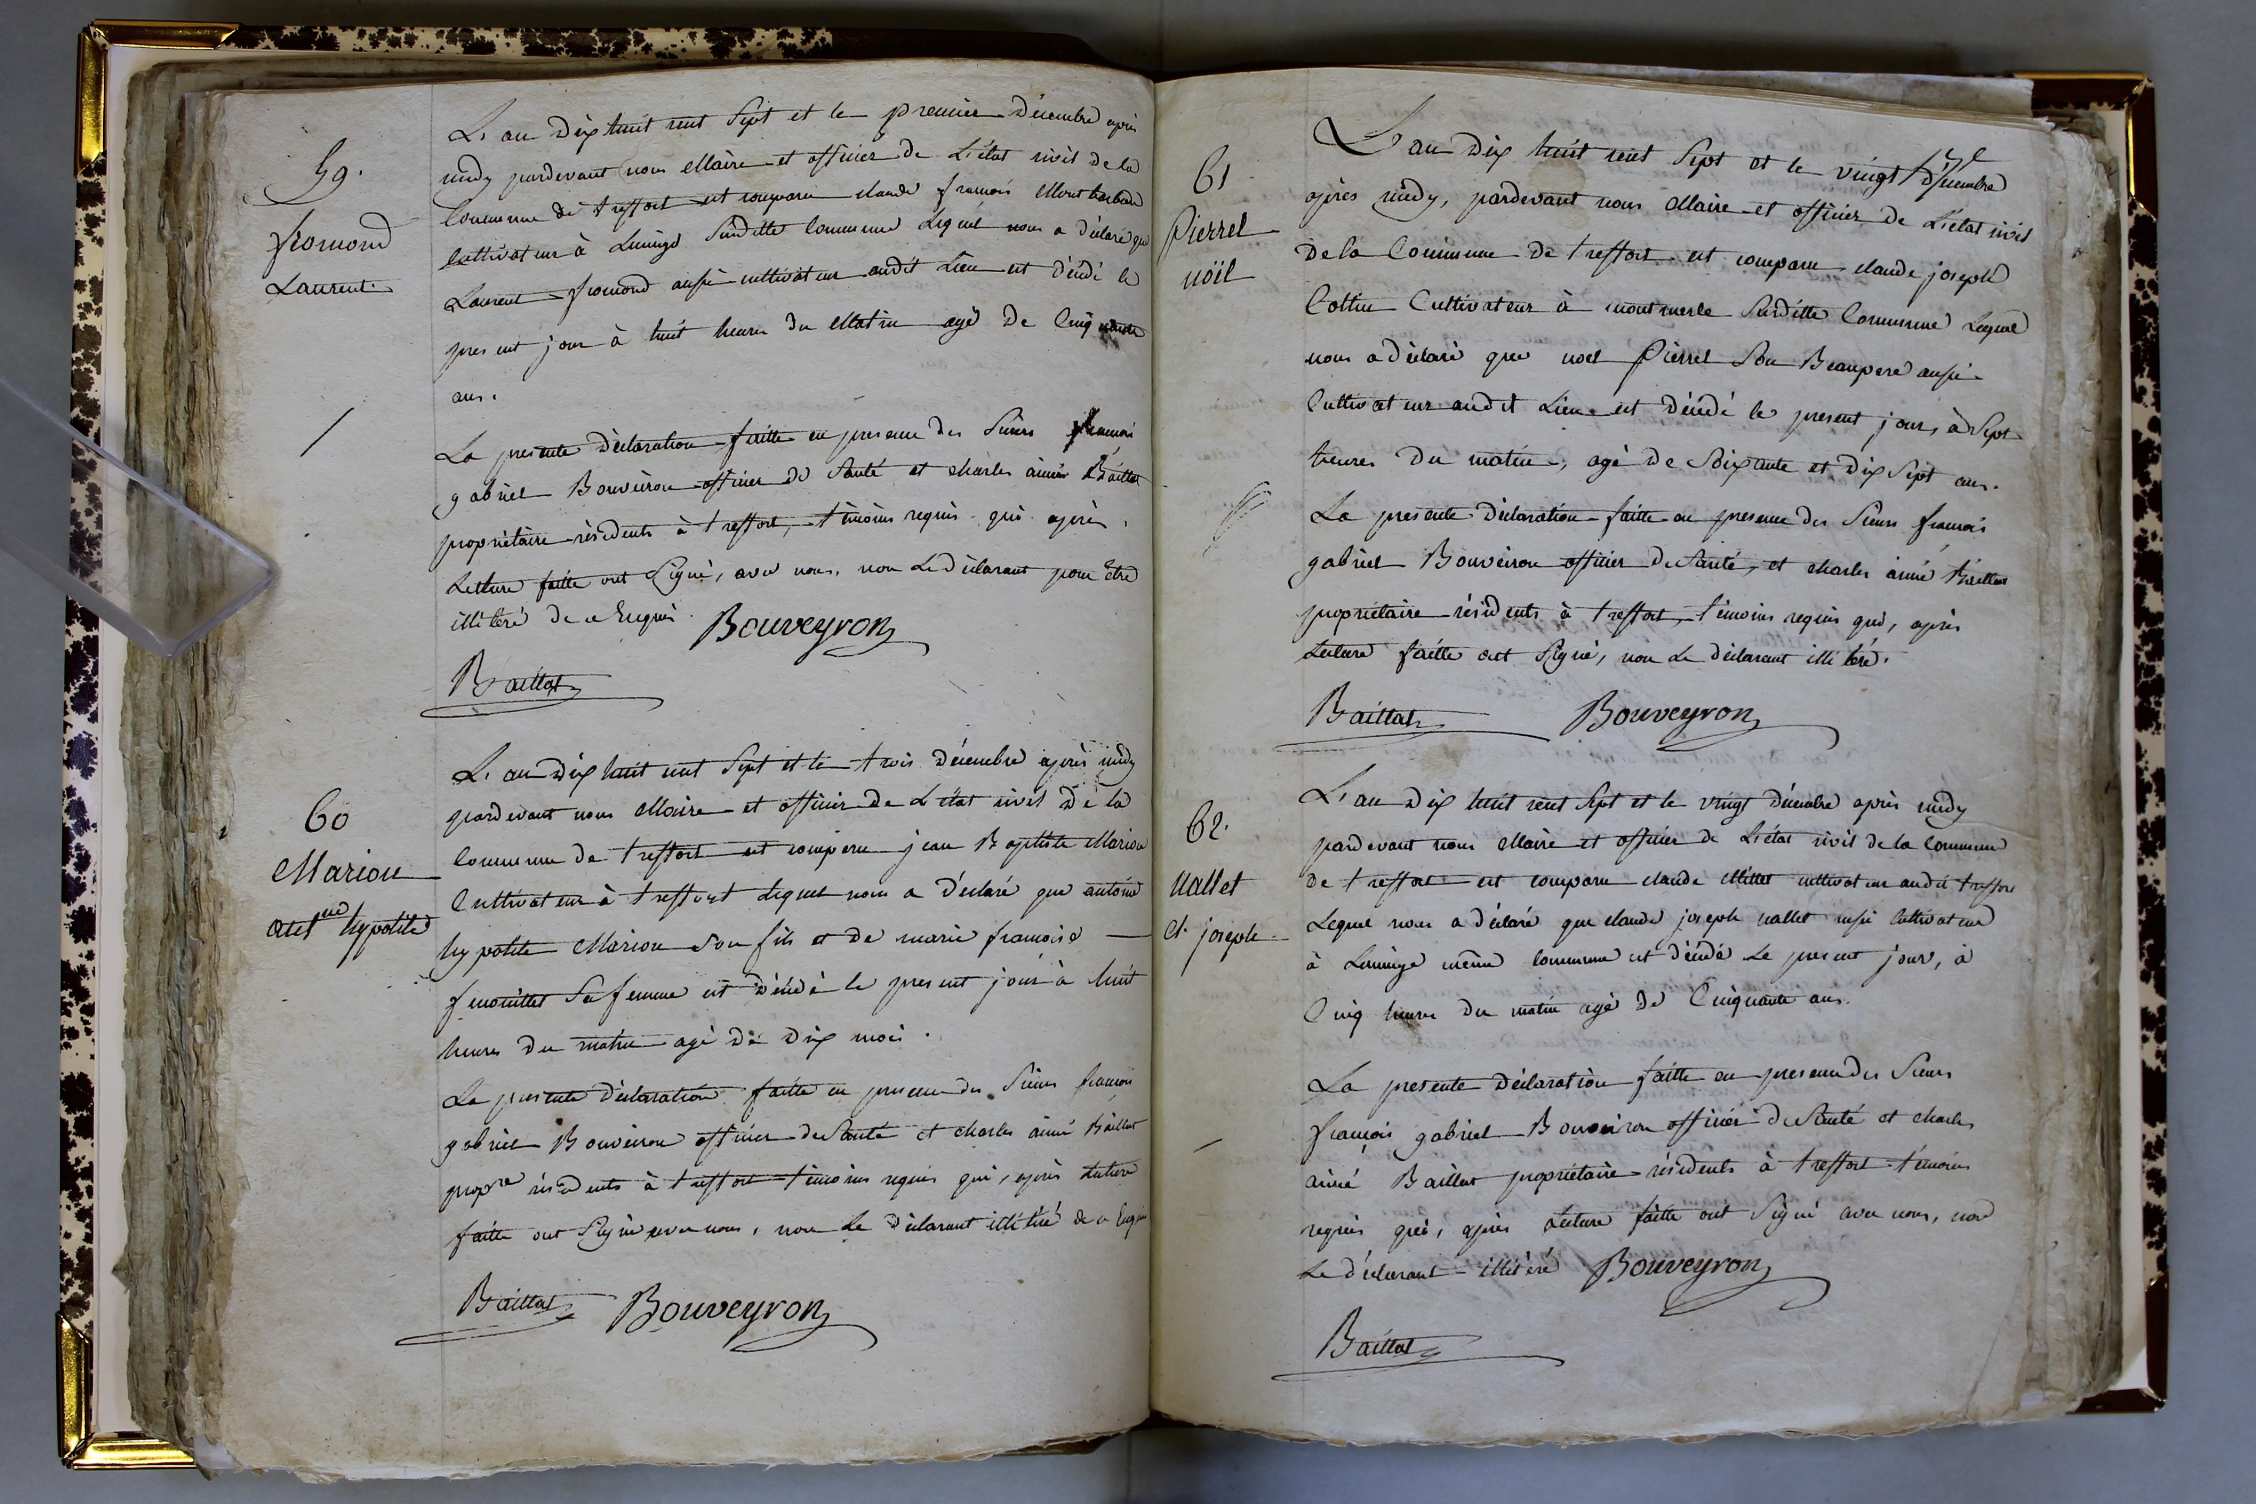 59.
fromond
Laurent
L'an Dix huit cent Sept et le premier Décembre après
midy pardevant nous Maire et officier de L'état civil de la
Commune de treffort est comparu claude françois Montbarbon
Cultivateur à Lucinge Surditte Commune Lequel nous a déclaré que
Laurent fromond aussi cultivateur audit Lieu est décédé le
present jour à huit heures du Matin agé de Cinquante
ans.
La presente déclaration faitte en presence des Sieurs françois
gabriel Bouveiron officier de Santé et charles aimé Baillat
propriétaire résidents à treffort, témoins requis qui après
Lecture faitte ont Signé, avec nous, non Le déclarant pour Etre
illitéré de ce Enquis.
Bouveyron
Baillat
60
Marion
hypolite
L'an Dix huit cent Sept et le trois décembre après midy
pardevant nous Maire et officier de L'état civil de la
Commune de treffort est comparu jean Baptiste Marion
Cultivateur à treffort Lequel nous a déclaré que antoine
hypolite Marion son fils et de marie françoise
fenouillet Sa femme est décédé le present jour à huit
heures du matin agé de dix mois.
La presente déclaration faitte en presence des Sieurs françois
gabriel Bouveiron officier de Santé et charles aimé Baillat
propre résidents à treffort témoins requis qui, après Lecture
faitte ont Signé avec nous, non Le déclarant illitéré de ce Enquis
Baillat Bouveyron
61
Pierrel
nöel
L'an Dix huit cent Sept et le vingt décembre
après midy, pardevant nous Maire et officier de L'état civil
De la Commune de treffort est comparu claude joseph
Cottin Cultivateur à montmerle Surditte Commune Lequel
nous a déclaré que noel Pierrel Son Beaupere aussi
Cultivateur audit Lieu est décédé le present jour, à Sept
heures du matin, agé de Soixante et dix Sept ans.
La presente déclaration faitte en presence des Sieurs françois
gabriel Bouveiron officier de Santé, et charles aimé Baillat
propriétaire résidents à treffort, témoins requis qui, après
Lecture faitte ont Signé, non Le déclarant illitéré.
Baillat Bouveyron
62.
vallet
cl. joseph
L'an dix huit cent Sept et le vingt décembre après midy
pardevant nous Maire et officier de L'état civil de la Commune
de treffort est comparu claude Millet cultivateur audit treffort
Lequel nous a déclaré que claude joseph vallet aussi Cultivateur
à Lucinge même Commune est décédé Le present jour, à
Cinq heures du matin agé de Cinquante ans.
La presente déclaration faitte en presence des Sieurs
françois gabriel Bouveiron officier de Santé et charles
aimé Baillat propriétaire résidents à treffort témoins
requis qui, après Lecture faitte ont Signé avec nous, non
Le déclarant illitéré Bouveyron
Baillat